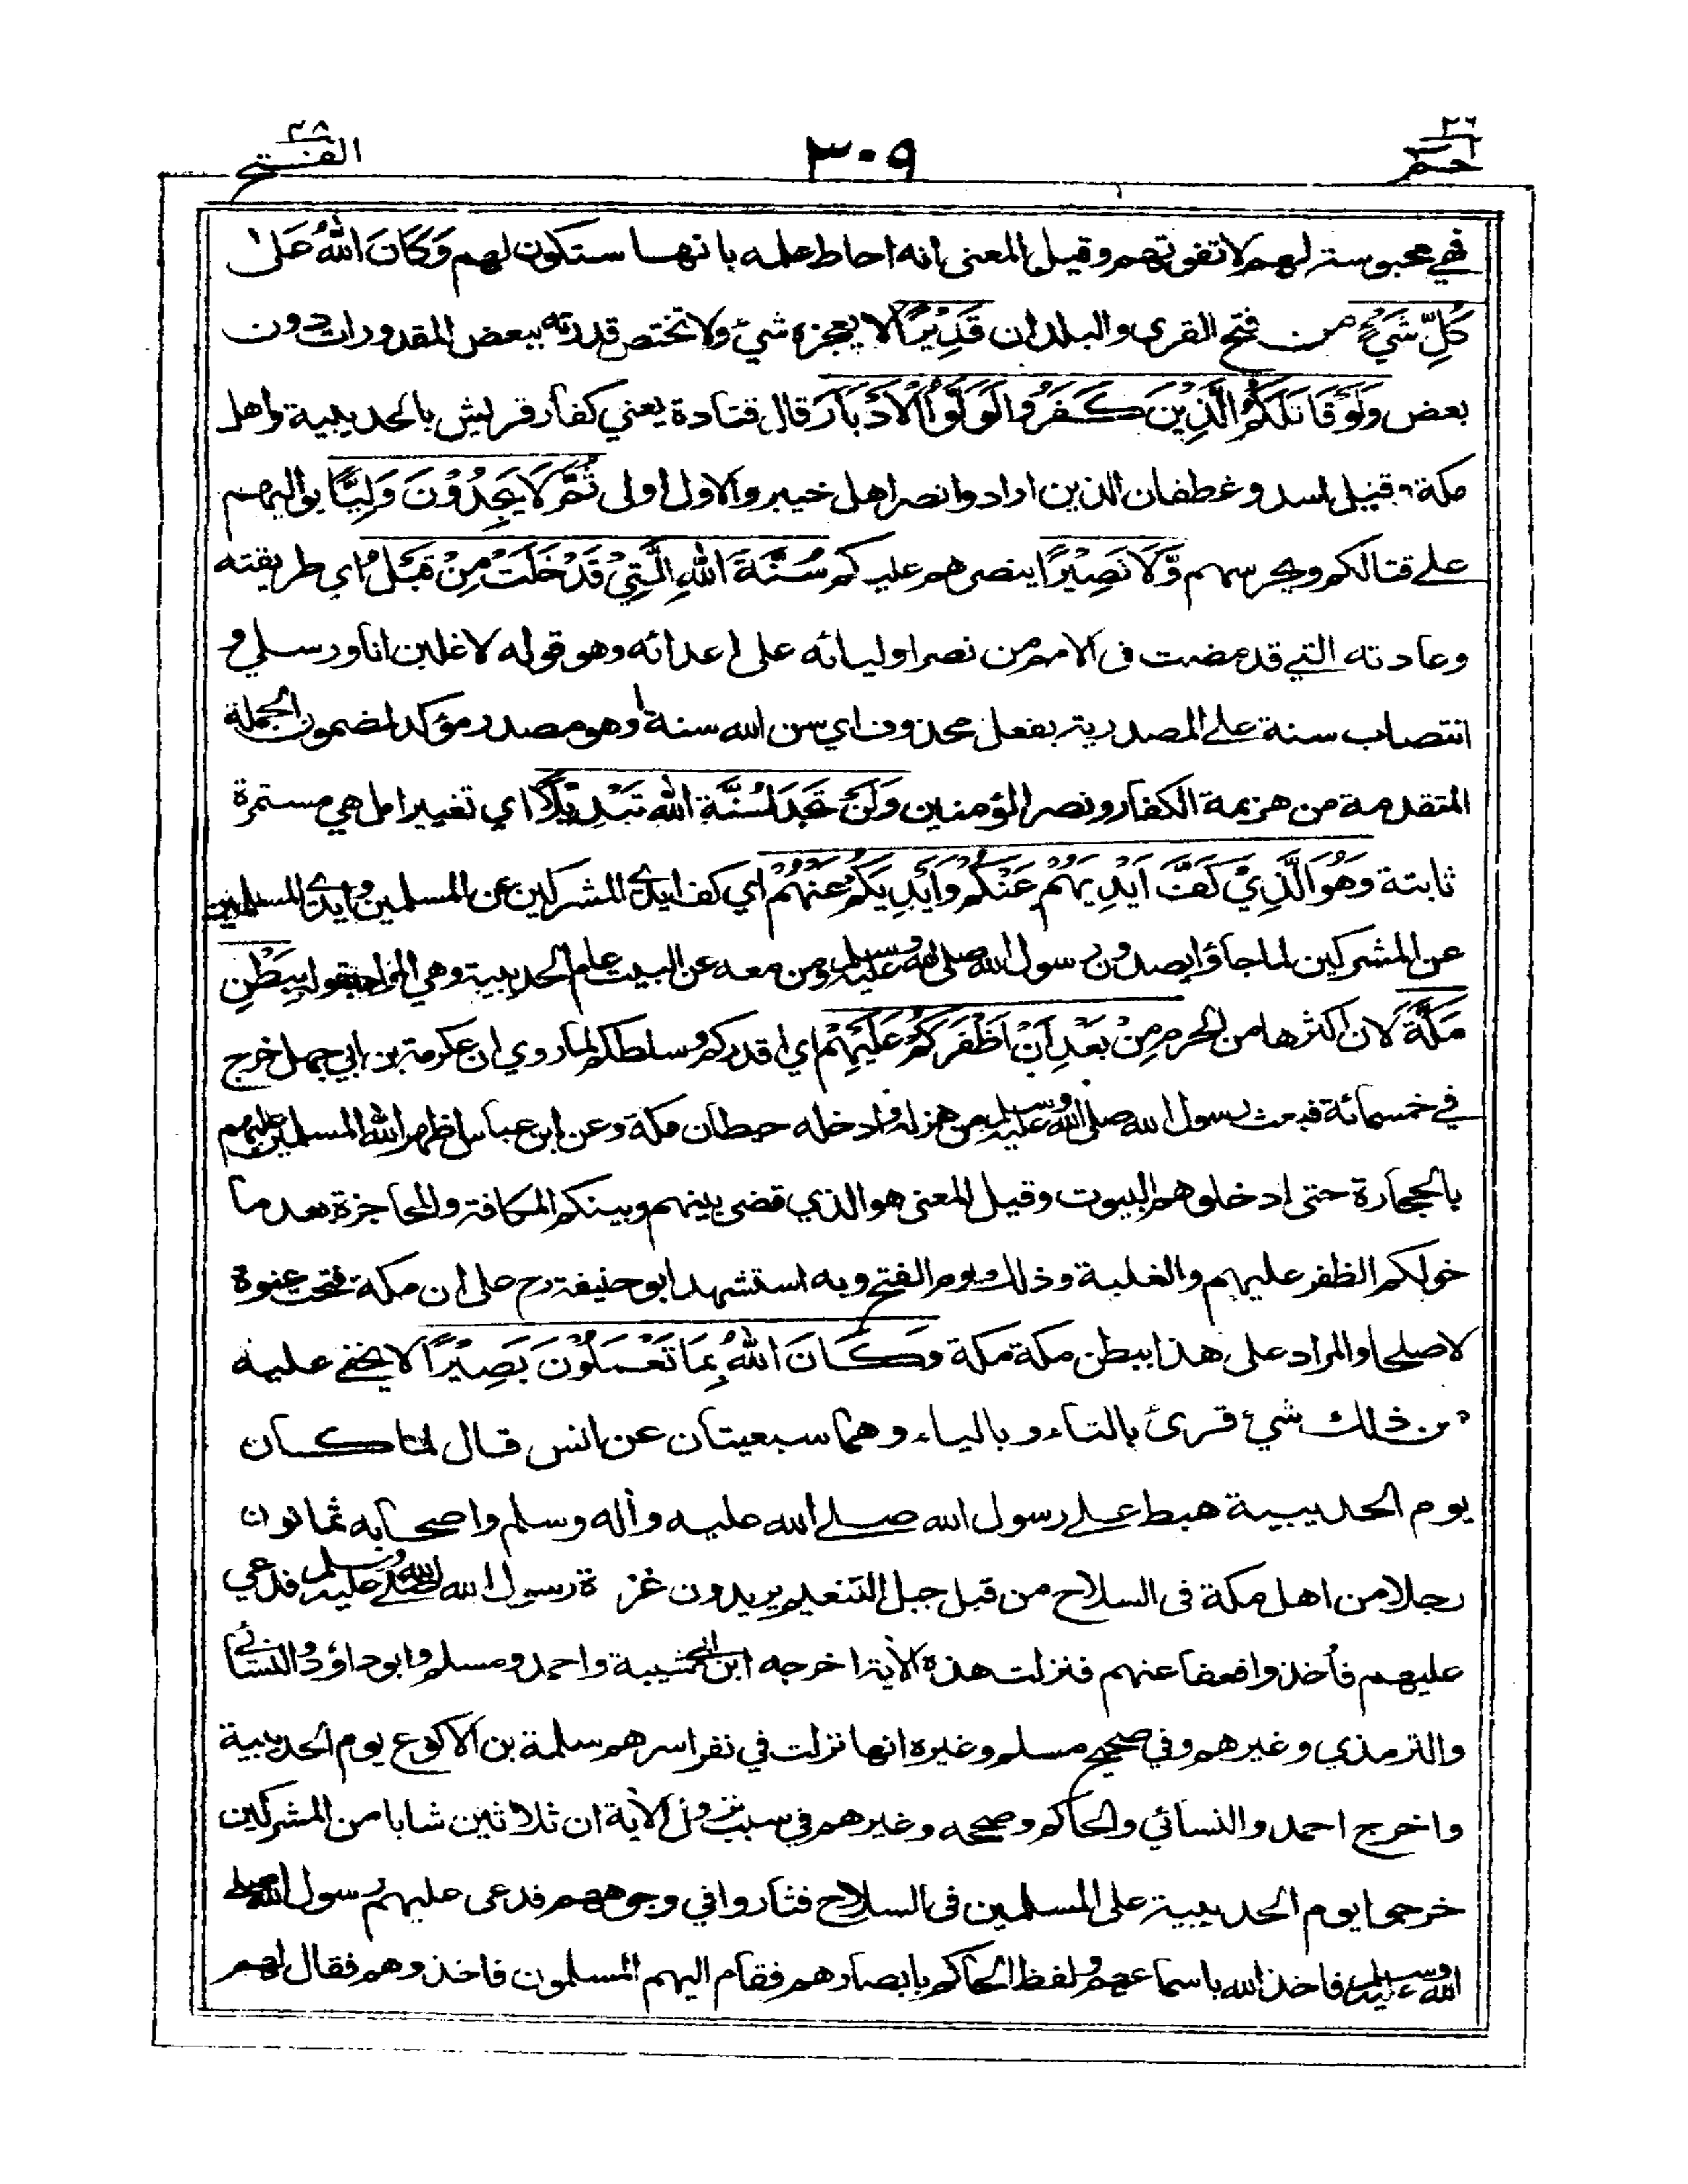 ٢٦
حم
٣٠٩
٤٨
الفتح
فهي محبوسة لهم لا تفوتهم وقيل المعنى انه احاط علمه بانها ستكون لهم وَكَانَ اللهُ عَلٰى
كُلِّ شَيْءٍ من فتح القرى والبلدان قَدِيْرًا لا يعجزه شيء ولا تختص قدرته ببعض المقدورات دون
بعض وَلَوْ قَاتَلَكُمُ الَّذِيْنَ كَفَرُوْا لَوَلَّوُا الْاَدْبَارَ قال قتادة يعني كفار قريش بالحديبية واهل
مكة وقيل اسد وغطفان الذين ارادوا نصر اهل خيبر والاول اولى ثُمَّ لَا يَجِدُوْنَ وَلِيًّا يواليهم
على قتالكم ويحرسهم وَّلَا نَصِيْرًا ينصرهم عليكم سُنَّةَ اللهِ الَّتِيْ قَدْ خَلَتْ مِنْ قَبْلُ اي طريقته
وعادته التي قد مضت فى الامم من نصر اوليائه على اعدائه وهو قوله لاغلبن انا ورسلي و
انتصاب سنة على المصدرية بفعل محذوف اي سن الله سنة او هو مصدر مؤكد لمضمون الجملة
المتقدمة من هزيمة الكفار ونصر المؤمنين وَلَنْ تَجِدَ لِسُنَّةِ اللهِ تَبْدِيْلًا اي تغييرا بل هي مستمرة
ثابتة وَهُوَ الَّذِيْ كَفَّ اَيْدِيَهُمْ عَنْكُمْ وَاَيْدِيَكُمْ عَنْهُمْ اي كف ايدي المشركين عن المسلمين وايدي المسلمين
عن المشركين لما جاؤا يصدون رسول الله صلى الله عليه وسلم ومن معه عن البيت عام الحديبية وهي المراد بقوله بِبَطْنِ
مَكَّةَ لان اكثرها من الحرم مِنْ بَعْدِ اَنْ اَظْفَرَكُمْ عَلَيْهِمْ اي اقدركم وسلطكم لما روي ان عكرمة بن ابي جهل خرج
في خمسمائة فبعث رسول الله صلى الله عليه وسلم من هزمه وادخله حيطان مكة وعن ابن عباس اظهر الله المسلمين عليهم
بالحجارة حتى ادخلوهم البيوت وقيل المعنى هو الذي قضى بينهم وبينكم المكافة والمحاجزة بعد ما
خولكم الظفر عليهم والغلبة وذلك يوم الفتح وبه استشهد ابو حنيفة رح على ان مكة فتحت عنوة
لا صلحا والمراد على هذا ببطن مكة مكة وَكَانَ اللهُ بِمَا تَعْمَلُوْنَ بَصِيْرًا لا يخفى عليه
من ذلك شيء قرئ بالتاء وبالياء وهما سبعيتان عن انس قال لما كان
يوم الحديبية هبط على رسول الله صلى الله عليه وأله وسلم واصحابه ثمانون
رجلا من اهل مكة فى السلاح من قبل جبل التنعيم يريدون غرة رسول الله صلى الله عليه وسلم فدعي
عليهم فأخذوا فعفا عنهم فنزلت هذه الأية اخرجه ابن ابي شيبة واحمد ومسلم وابو داؤد والنسائي
والترمذي وغيرهم وفي صحيح مسلم وغيره انها نزلت في نفر اسرهم سلمة بن الاكوع يوم الحديبية
واخرج احمد والنسائي والحاكم وصححه وغيرهم في سبب نزول الأية ان ثلاثين شابا من المشركين
خرجوا يوم الحديبية على المسلمين فى السلاح فثاروا في وجوههم فدعى عليهم رسول الله صلى
الله عليه وسلم فاخذ الله باسماعهم ولفظ الحاكم بابصارهم فقام اليهم المسلمون فاخذوهم فقال لهم